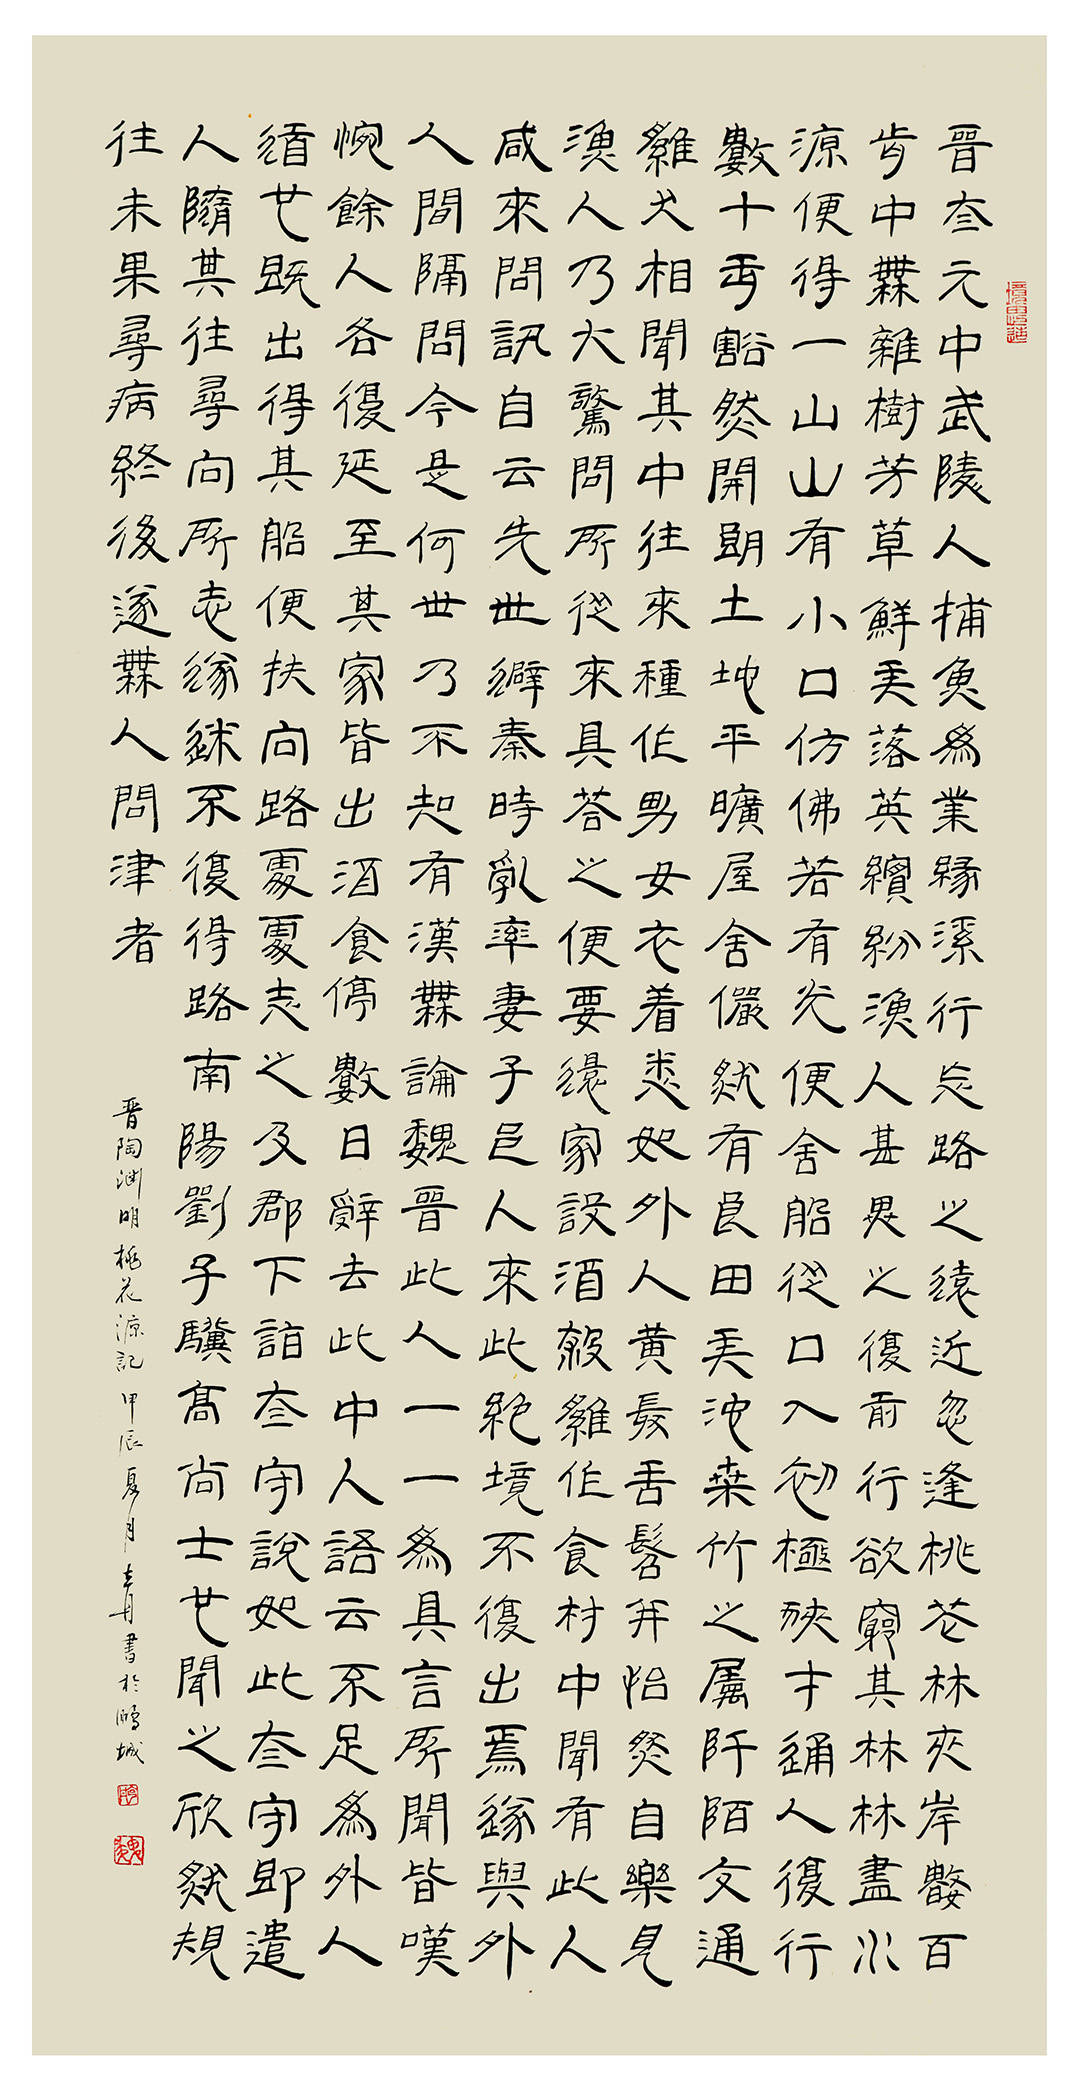 晉太元中武陵人捕魚為業緣溪行忘路之遠近忽逢桃花林夾岸數百
步中無雜樹芳草鮮美落英繽紛漁人甚異之復前行欲窮其林林盡水
源便得一山山有小口仿佛若有光便舍船從口入初極狹才通人復行
數十步豁然開朗土地平曠屋舍儼然有良田美池桑竹之屬阡陌交通
雞犬相聞其中往來種作男女衣着悉如外人黃髮垂髫并怡然自樂見
漁人乃大驚問所從來具答之便要還家設酒殺雞作食村中聞有此人
咸來問訊自云先世避秦時亂率妻子邑人來此絕境不復出焉遂與外
人間隔問今是何世乃不知有漢無論魏晉此人一一為具言所聞皆嘆
惋餘人各復延至其家皆出酒食停數日辭去此中人語云不足為外人
道也既出得其船便扶向路處處志之及郡下詣太守說如此太守即遣
人隨其往尋向所志遂迷不復得路南陽劉子驥高尚士也聞之欣然規
往未果尋病終後遂無人問津者
晉陶淵明桃花源記甲辰夏月書於鵬城
魏